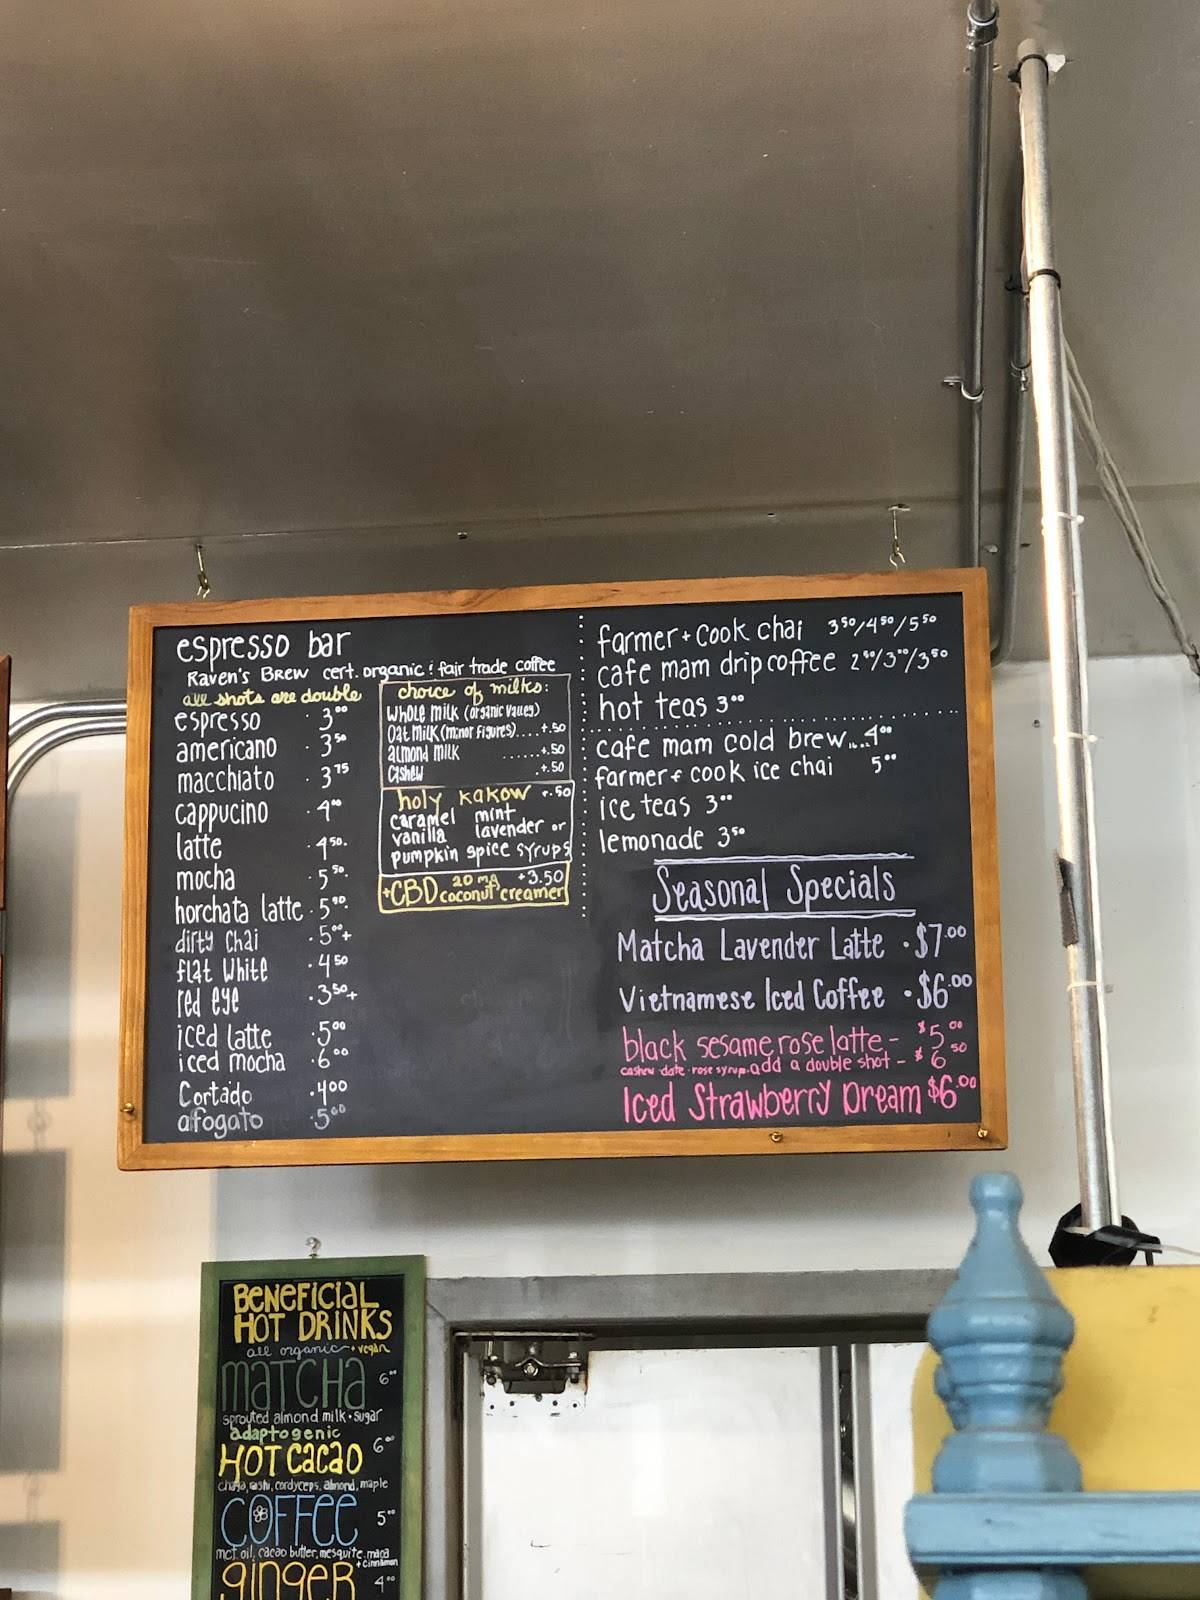 espresso bar
Raven's Brew cert. organic & fair trade coffee
all shots are double
espresso · 3.00
americano · 3.50
macchiato · 3.75
cappucino · 4.00
latte · 4.50
mocha · 5.50
horchata latte · 5.50
dirty chai · 5.00+
flat white · 4.50
red eye · 3.50+
iced latte · 5.00
iced mocha · 6.00
Cortado · 4.00
afogato · 5.00
choice of milks:
Whole milk (organic valley)
Oat milk (minor figures).... +.50
almond milk ....... +.50
cashew .+.50
holy kakow +.50
caramel mint
vanilla lavender or
pumpkin spice syrups
+CBD 20 mg +3.50
coconut creamer
farmer + cook chai 3.50/4.50/5.50
cafe mam drip coffee 2.50/3.00/3.50
hot teas 3.00
cafe mam cold brew.... 4.00
farmer + cook ice chai 5.00
ice teas 3.00
lemonade 3.50
Seasonal Specials
Matcha Lavender Latte · $7.00
Vietnamese Iced Coffee · $6.00
black sesame rose latte - $5.00
cashew·date·rose syrup· add a double shot - $6.50
Iced Strawberry Dream $6.00
Beneficial
Hot Drinks
all organic + vegan
matcha 6.00
sprouted almond milk · sugar
adaptogenic
Hot Cacao 6.00
chaga, reishi, cordyceps, almond, maple
Coffee 5.00
mct oil, cacao butter, mesquite, maca
+ cinnamon
ginger 4.00